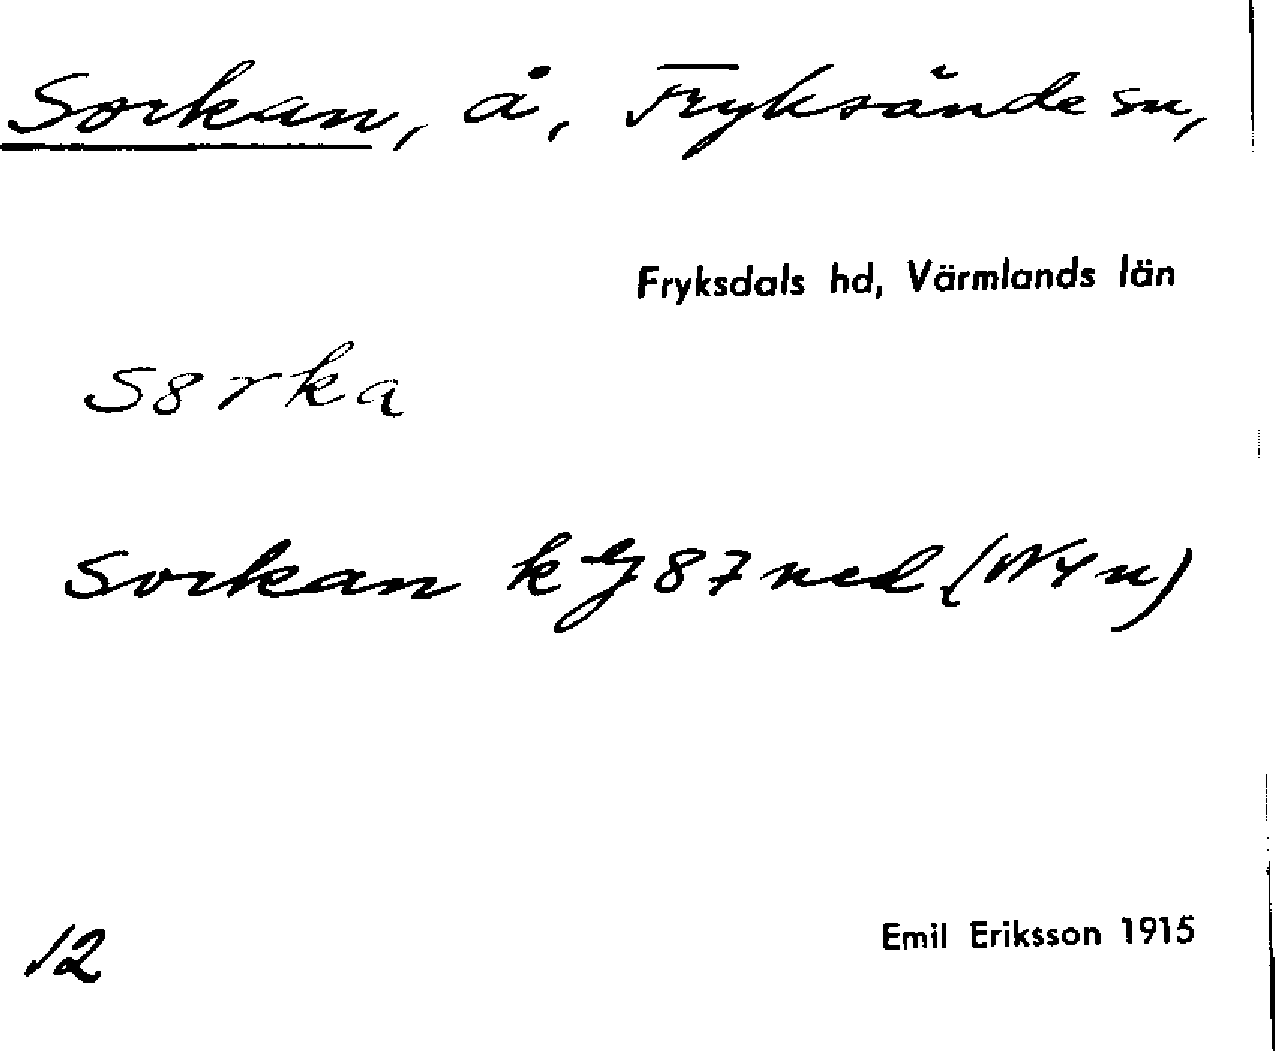 Sorkan, å, Fryksände sn,
Fryksdals hd, Värmlands län
s8rka
Sorkan kg 87 ned (NYn)
12
Emil Eriksson 1915